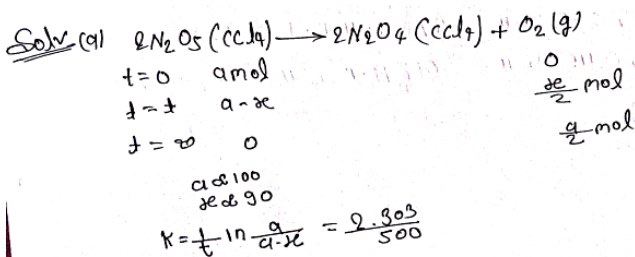 Solv (a) 2N2O5 (ccl4) → 2N2O4 (ccl4) + O2 (g)
t=0 a mol 0
t=t a-x x/2 mol
t=∞ 0 a/2 mol
a ∝ 100
x ∝ 90
K = 1/t ln a/a-x = 2.303/500